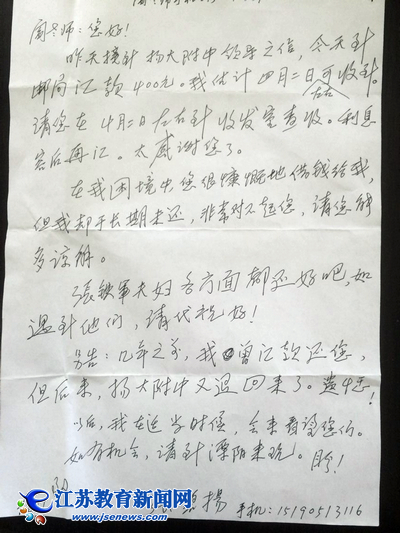 周老师：您好！
昨天接到扬大附中领导之信，今天到
邮局汇款400元。我估计四月二日左右可收到。
请您在4月二日左右到收发室查收。利息
容后再汇。太感谢您了。
在我困境中您很慷慨地借钱给我，
但我却于长期未还，非常对不起您，请您能
多谅解。
张铁军夫妇各方面都还好吧，如
遇到他们，请代祝好！
另告：几年之前，我曾汇款还您，
但后来，扬大附中又退回来了。
以后，我在适当时候，会来看望您们。
如有机会，请到溧阳来玩。盼！
扬 手机：15190513116
江苏教育新闻网
www.jsenews.com